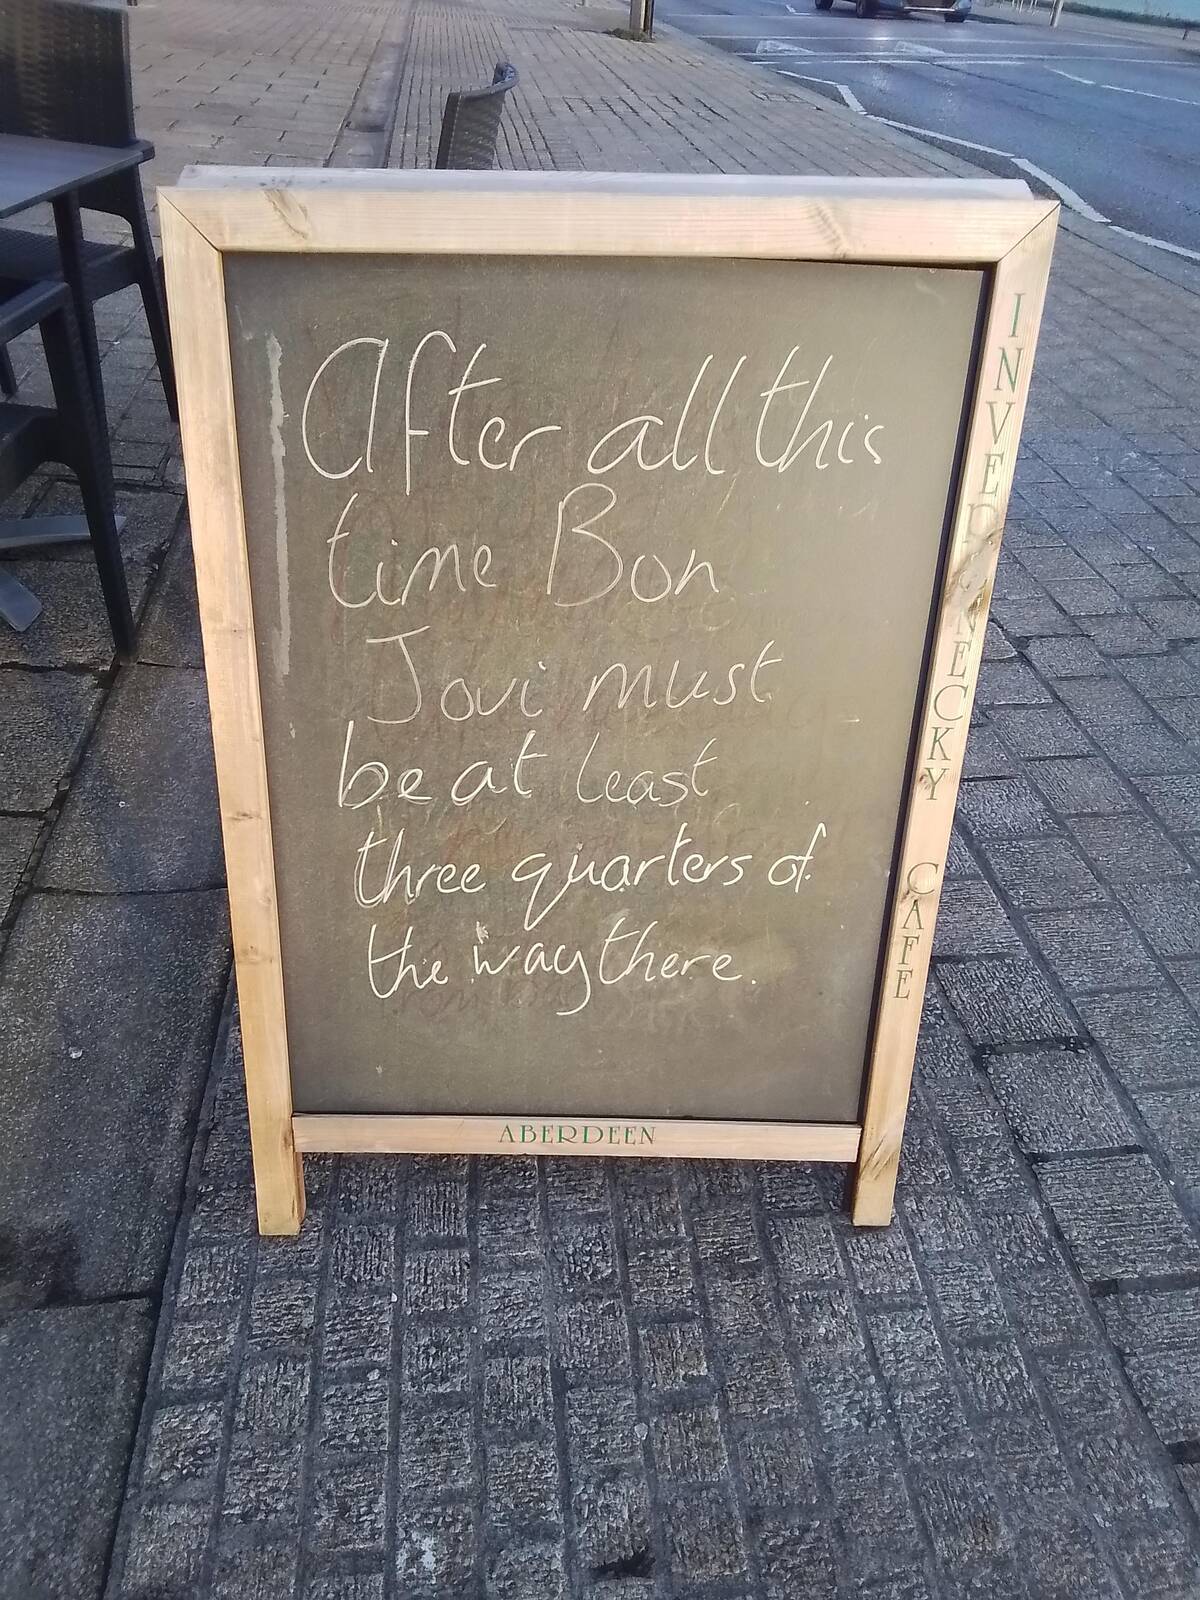 After all this
time Bon
Jovi must
be at least
three quarters of
the way there.
INVERSNECKY CAFE
ABERDEEN